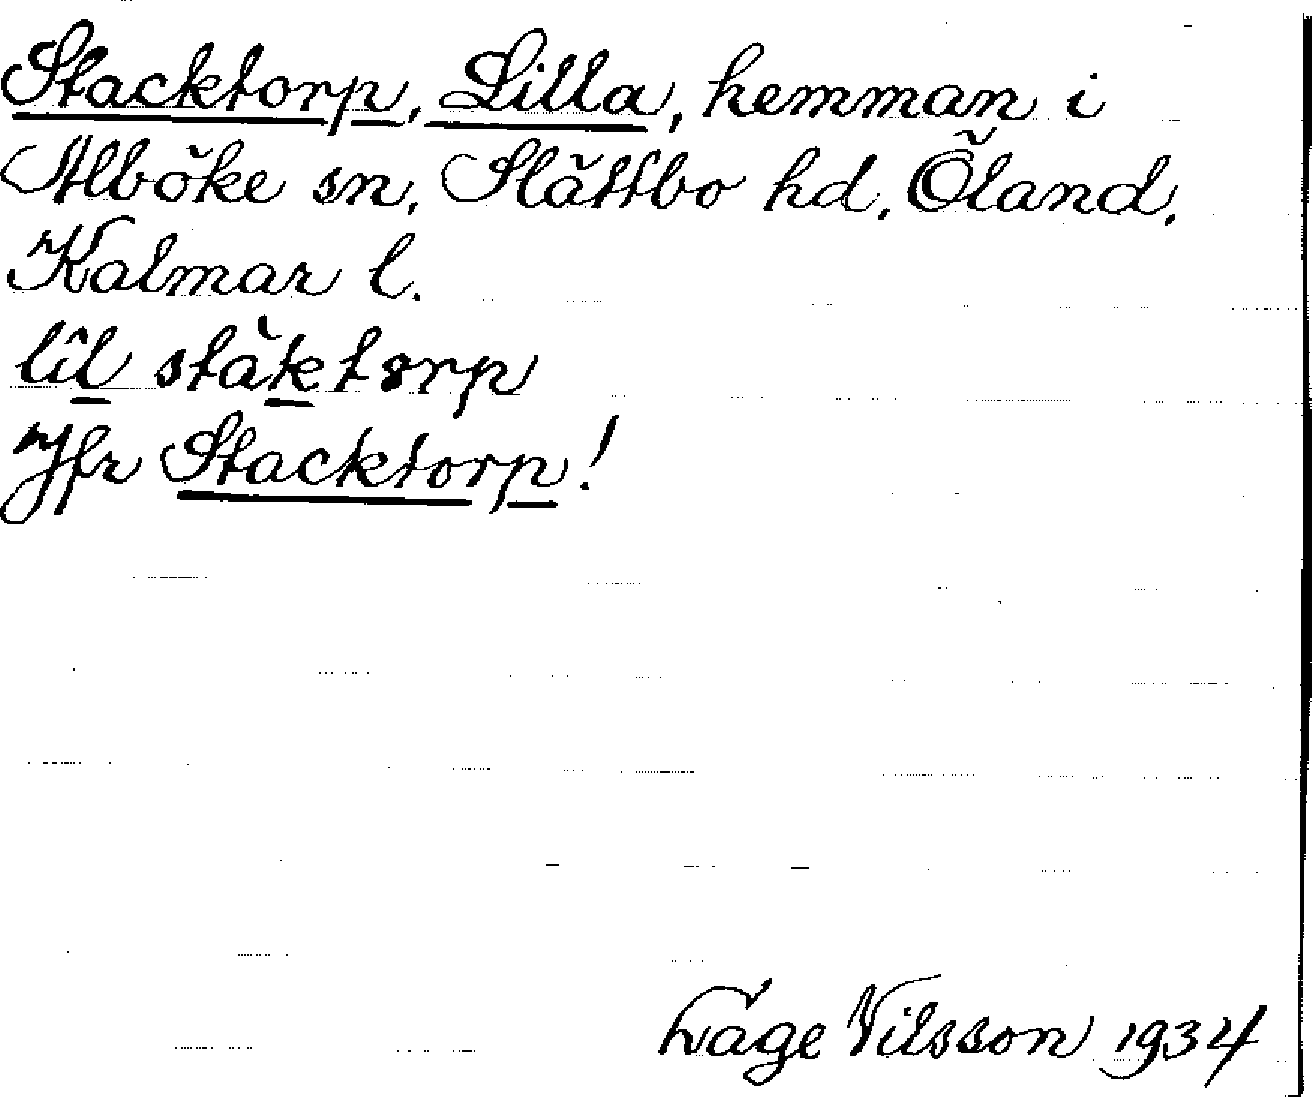 Stacktorp, Lilla, hemman i
Alböke sn, Slättbo hd, Öland,
Kalmar l.
lil stàktorp
Jfr Stacktorp!
Låge Nilsson 1934